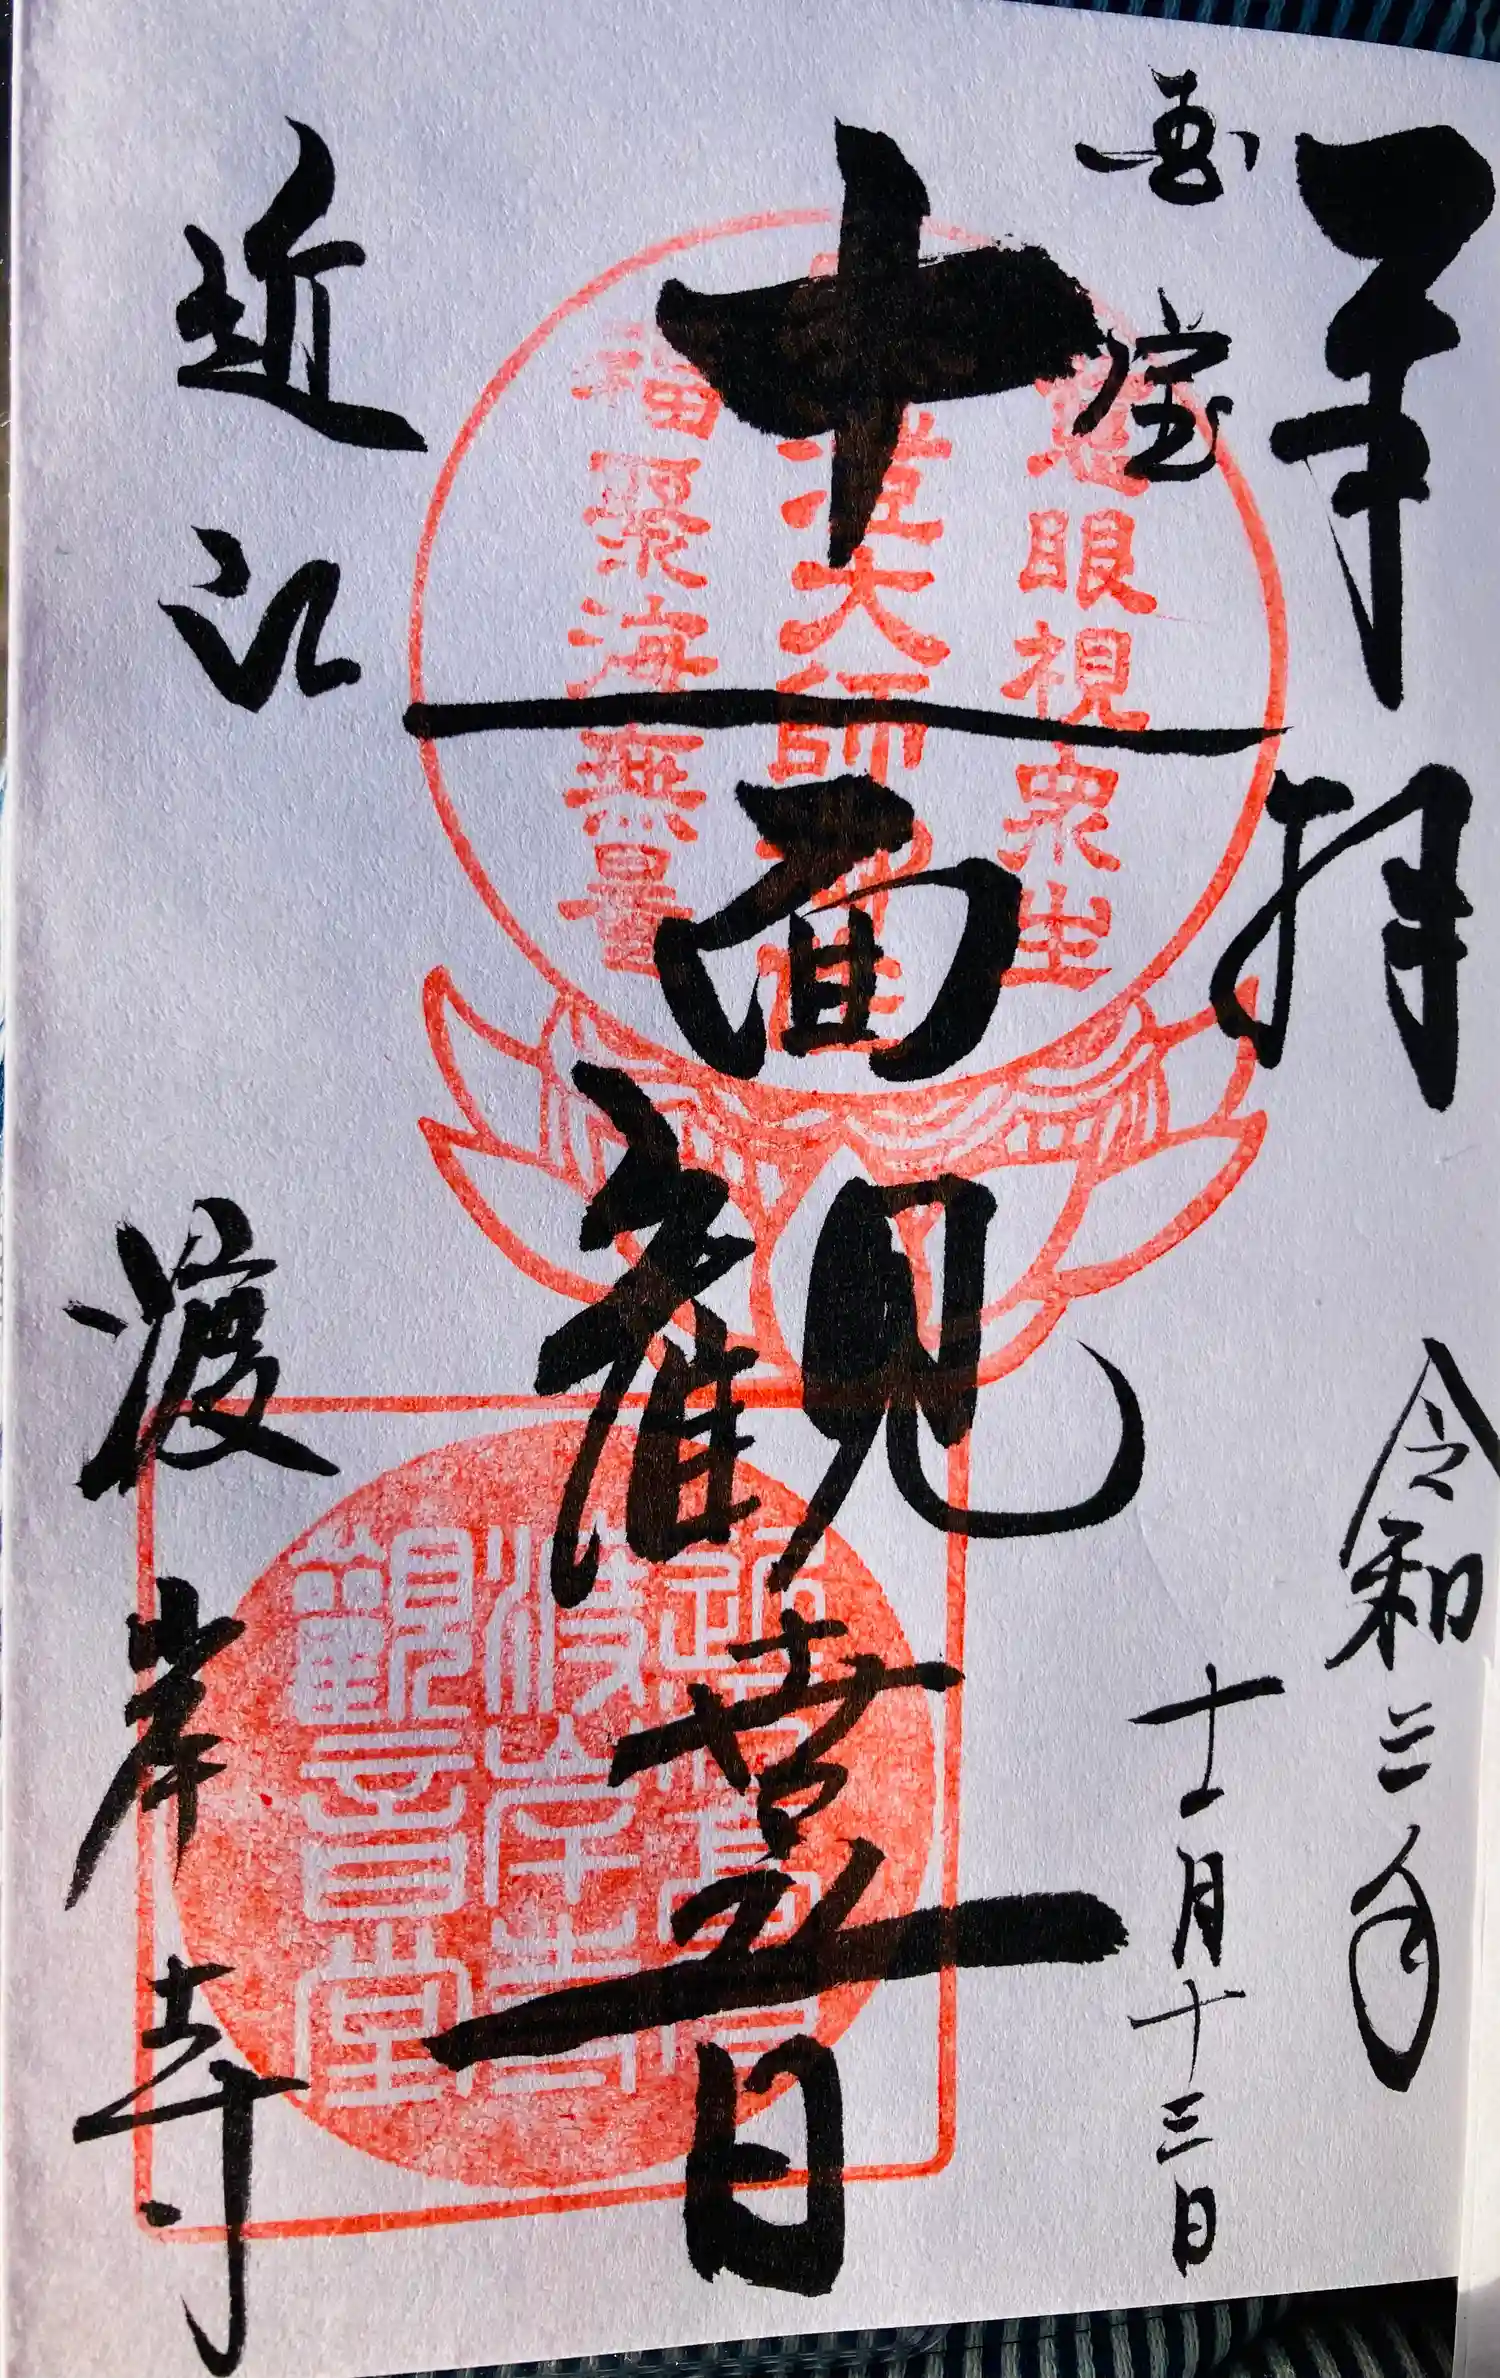 奉拝
令和三年
国宝
十一月十三日
十一面観世音
近江
渡岸寺
慈眼視衆生
福聚海無量
渡岸寺
觀音堂